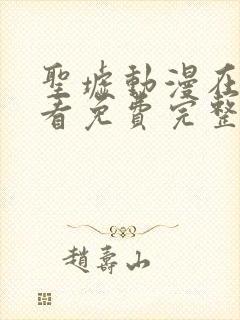 聖墟動漫在
看免費完整
趙壽山